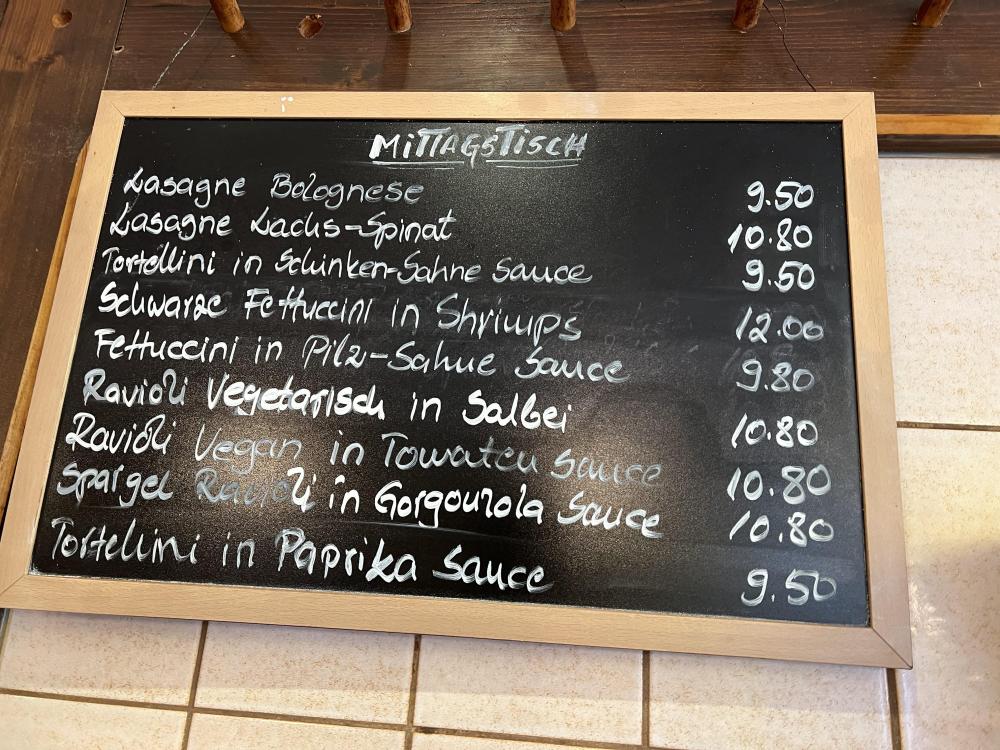 MITTAGSTISCH
Lasagne Bolognese 9.50
Lasagne Lachs-Spinat 10.80
Tortellini in Schinken-Sahne Sauce 9.50
Schwarze Fettuccini in Shrimps 12.00
Fettuccini in Pilz-Sahne Sauce 9.80
Ravioli Vegetarisch in Salbei 10.80
Ravioli Vegan in Tomaten Sauce 10.80
Spargel Ravioli in Gorgonzola Sauce 10.80
Tortellini in Paprika Sauce 9.50